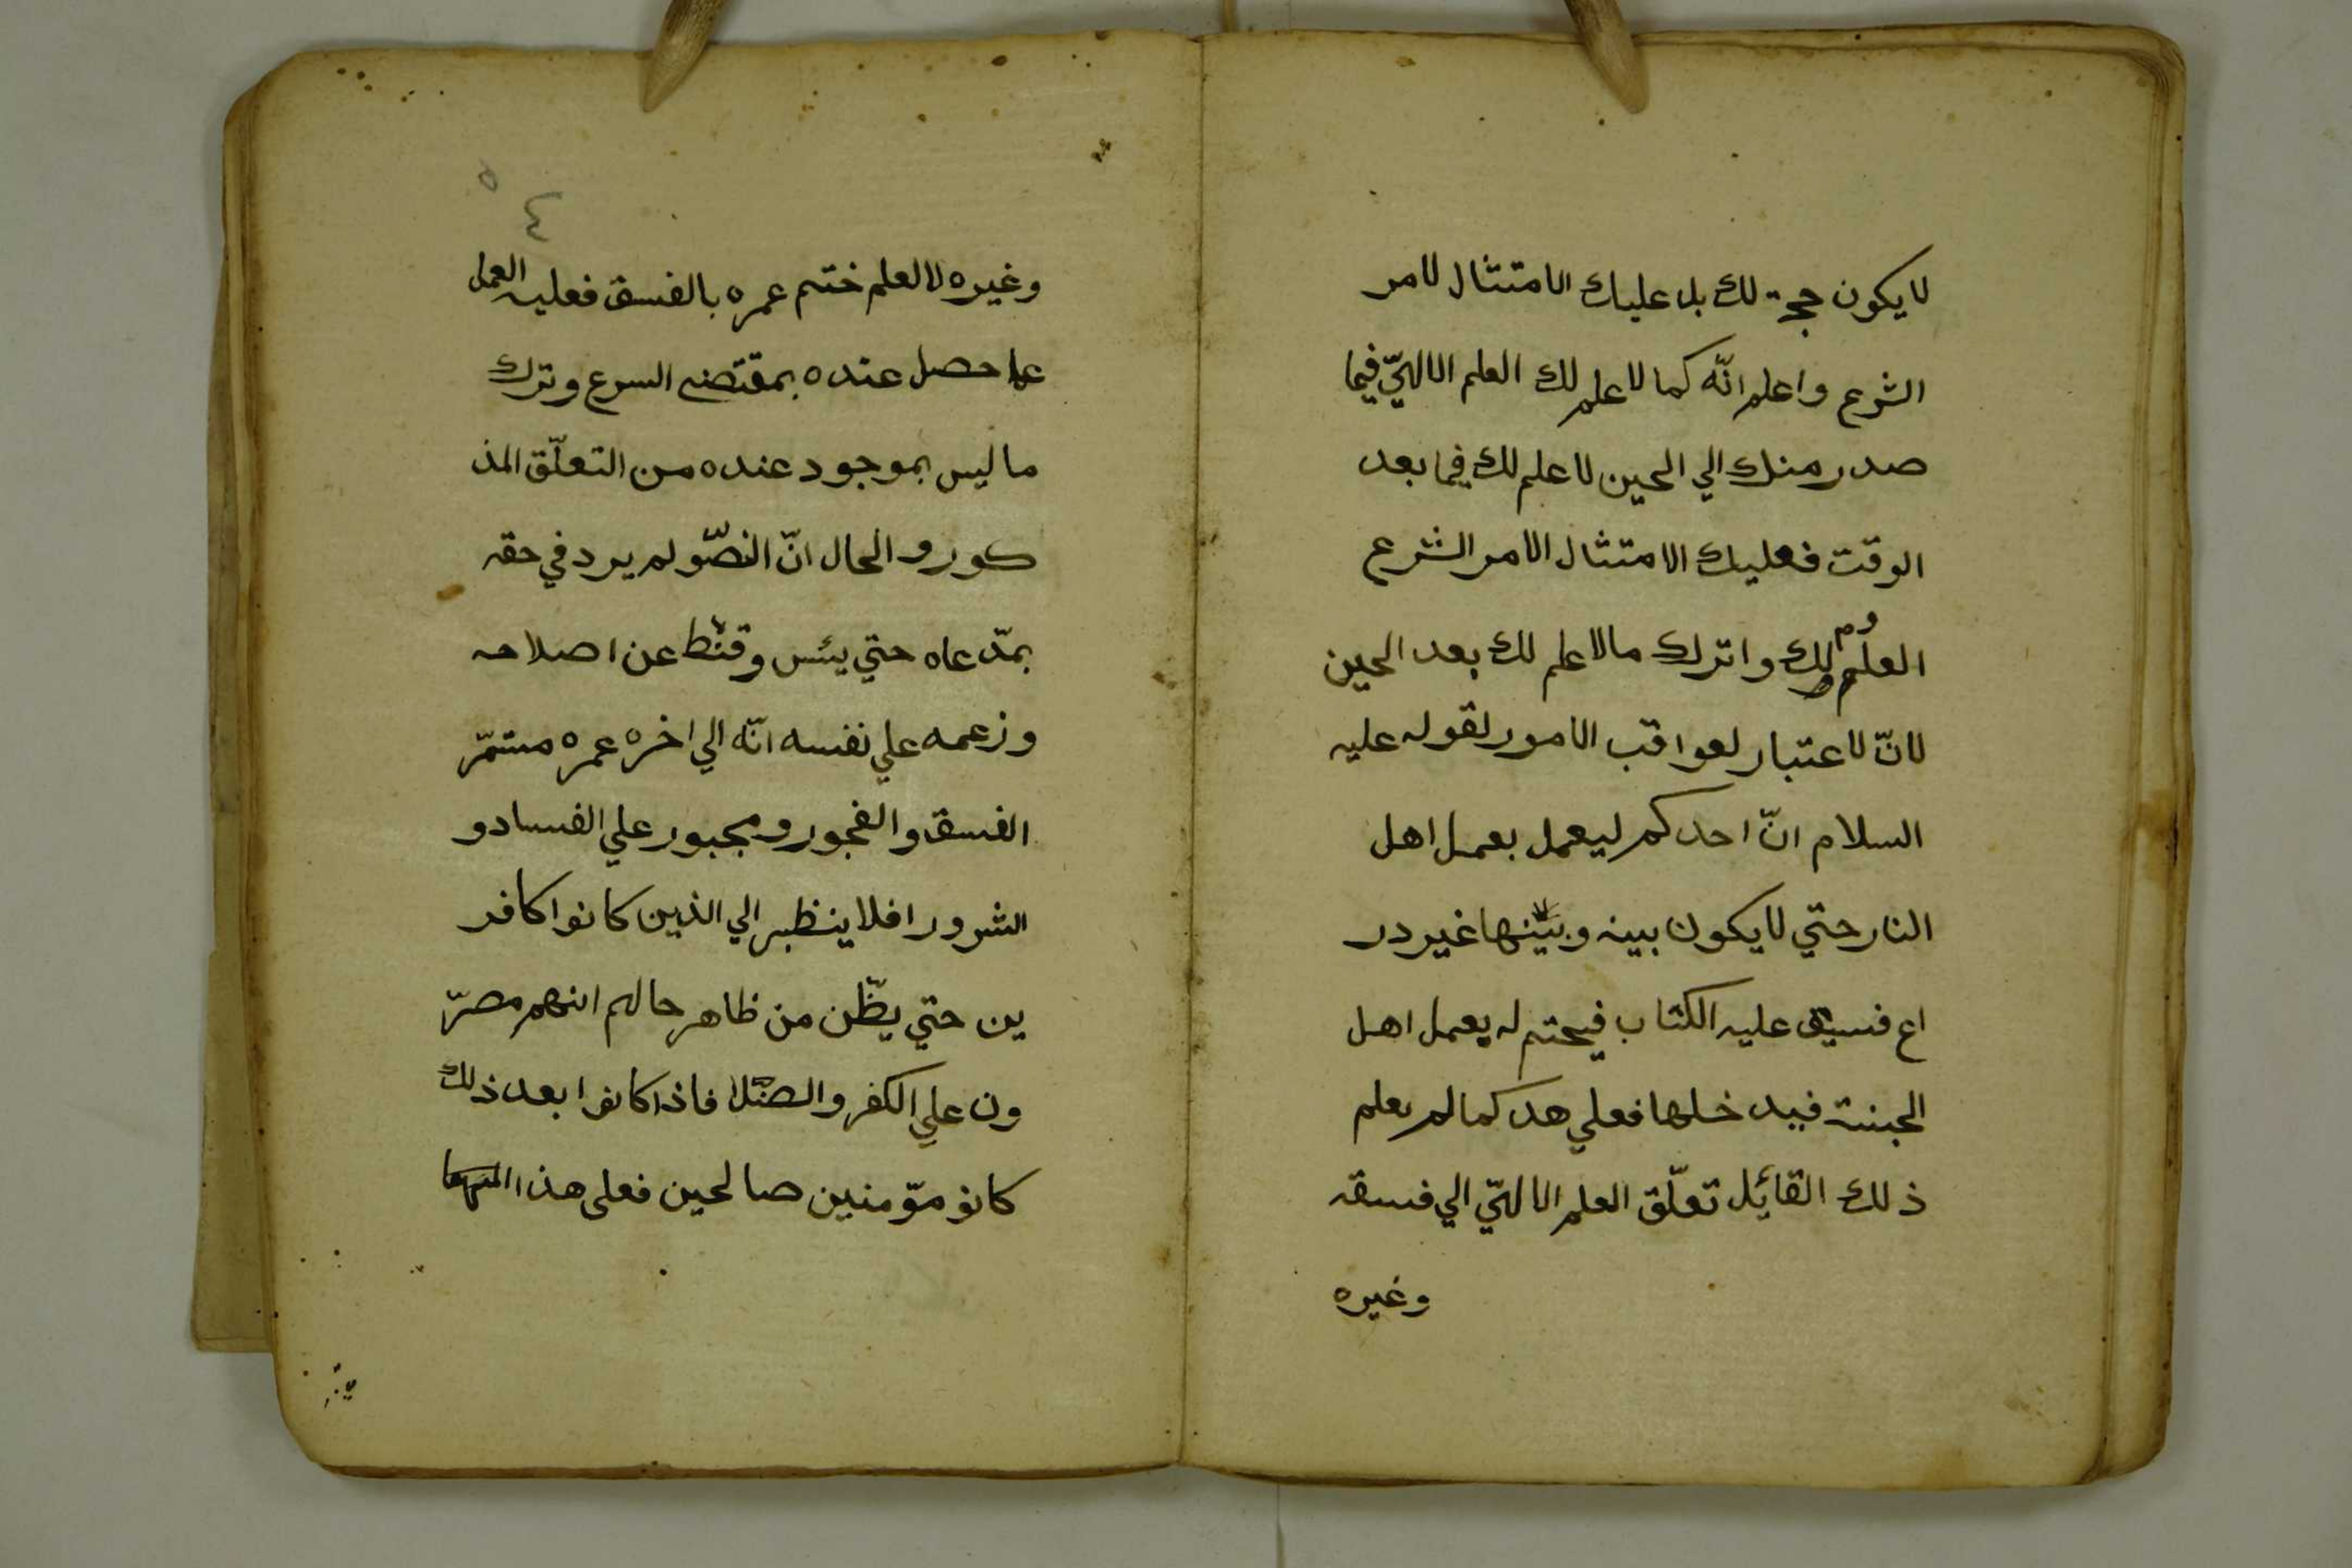 لا يكون حجة لك بل عليك الامتثال لامر
الشرع واعلم انّه كما لا علم لك العلم الالهيّ فيما
صدر منك الي الحين لا علم لك فيما بعد
الوقت فعليك الامتثال الامر الشرع
العلوم لك واترك مالا علم لك بعد الحين
لانّ لا عتبار لعواقب الامور لقوله عليه
السلام انّ احدكم ليعمل بعمل اهل
النار حتي لا يكون بينه وبينها غير در
اع فسبق عليه الكتاب فيحتم له يعمل اهل
الجنة فيدخلها فعلي هد كما لم يعلم
ذلك القائل تعلّق العلم الالهيّ الي فسقه
وغيره
٥
٤
وغيره لا العلم ختم عمره بالفسق فعليه العمل
عا حصل عنده بمقتضى السرع وترك
ما ليس بموجود عنده من التعلّق المذ
كور والحال انّ النصّو لم يرد في حقه
بمدّعاه حتي يئس وقنط عن اصلاحه
وزعمه علي نفسه انّه الي اخره عمره مستمرّ
الفسق والفجور ومجبور علي الفساد و
الشرور افلا ينظر الي الذين كانوا كافر
ين حتي يظّن من ظاهر حالهم انهم مصرّ
ون علي الكفر والضلا فاذا كانوا بعد ذلك
كانو موّمنين صالحين فعلى هذا